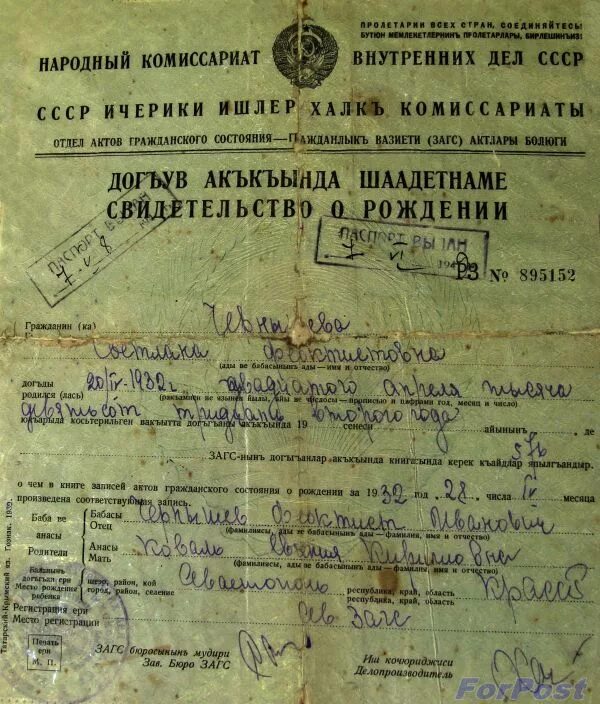 ПРОЛЕТАРИИ ВСЕХ СТРАН, СОЕДИНЯЙТЕСЬ!
БУТЮН МЕМЛЕКЕТЛЕРНИНЪ ПРОЛЕТАРЛАРЫ, БИРЛЕШИНЪИЗ!
НАРОДНЫЙ КОМИССАРИАТ ВНУТРЕННИХ ДЕЛ СССР
СССР ИЧЕРИКИ ИШЛЕР ХАЛКЪ КОМИССАРИАТЫ
ОТДЕЛ АКТОВ ГРАЖДАНСКОГО СОСТОЯНИЯ—ГРАЖДАНЛЫКЪ ВАЗИЕТИ (ЗАГС) АКТЛАРЫ БОЛЮГИ
ДОГЪУВ АКЪКЪЫНДА ШААДЕТНАМЕ
СВИДЕТЕЛЬСТВО О РОЖДЕНИИ
ПАСПОРТ ВЫДАН
ПАСПОРТ ВЫДАН
РЗ № 895152
Гражданин (ка) Чернышева
Светлана Феоктистовна
(ады ве бабасынынъ ады — имя и отчество)
догъды
родился (лась) 20/IV-1932 г. двадцатого апреля тысяча
(ракъамнен ве язынен йылы, айы ве числосы—прописью и цифрами год, месяц и число)
девятьсот тридцать второго года
юкъарыда косьтерильген вакъытта догъгъаны акъкъында 19 сенеси айынынъ де
ЗАГС-нынъ догъгъанлар акъкъында книгасында керек къайдлар япылгъандыр. 576
о чем в книге записей актов гражданского состояния о рождении за 1932 год 28 числа IV месяца
произведена соответствующая запись.
Баба ве анасы
Родители
Бабасы
Отец Чернышев Феоктист Иванович
(фамилиясы, ады ве бабасынынъ ады — фамилия, имя и отчество)
Анасы
Мать Коваль Евгения Кирилловна
(фамилиясы, ады ве бабасынынъ ады — фамилия, имя и отчество)
Баланынъ догъгъан ери
Место рождения ребенка
шеэр, район, кой
город, район, селение Севастополь
республика, край, область
республика, край, область
Регистрация ери
Место регистрации Сев. Загс
Печать ери
М. П.
ЗАГС бюросынынъ мудири
Зав. Бюро ЗАГС
Иш кочюриджиси
Делопроизводитель
Татарский-Крымский яз. Гознак. 1939.
ForPost